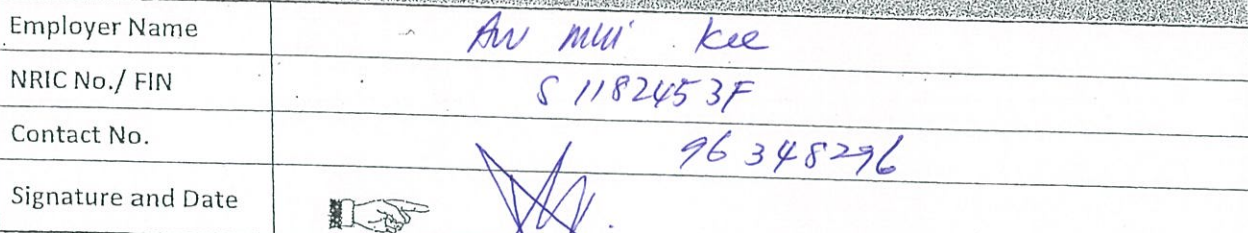 Employer Name Aw mui kee
NRIC No./ FIN S 1182453F
Contact No. 96 348296
Signature and Date